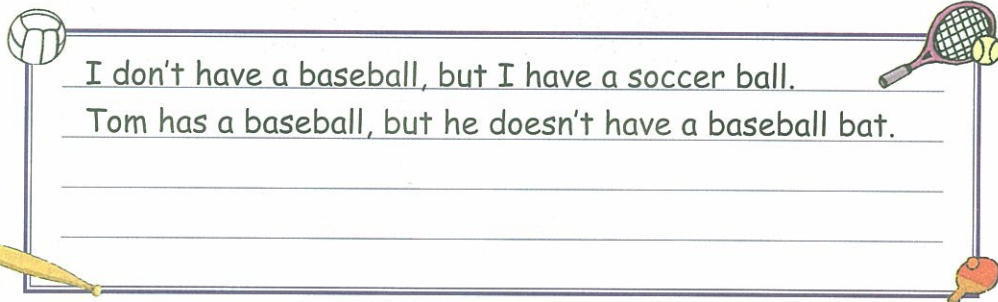 I don't have a baseball, but I have a soccer ball.
Tom has a baseball, but he doesn't have a baseball bat.